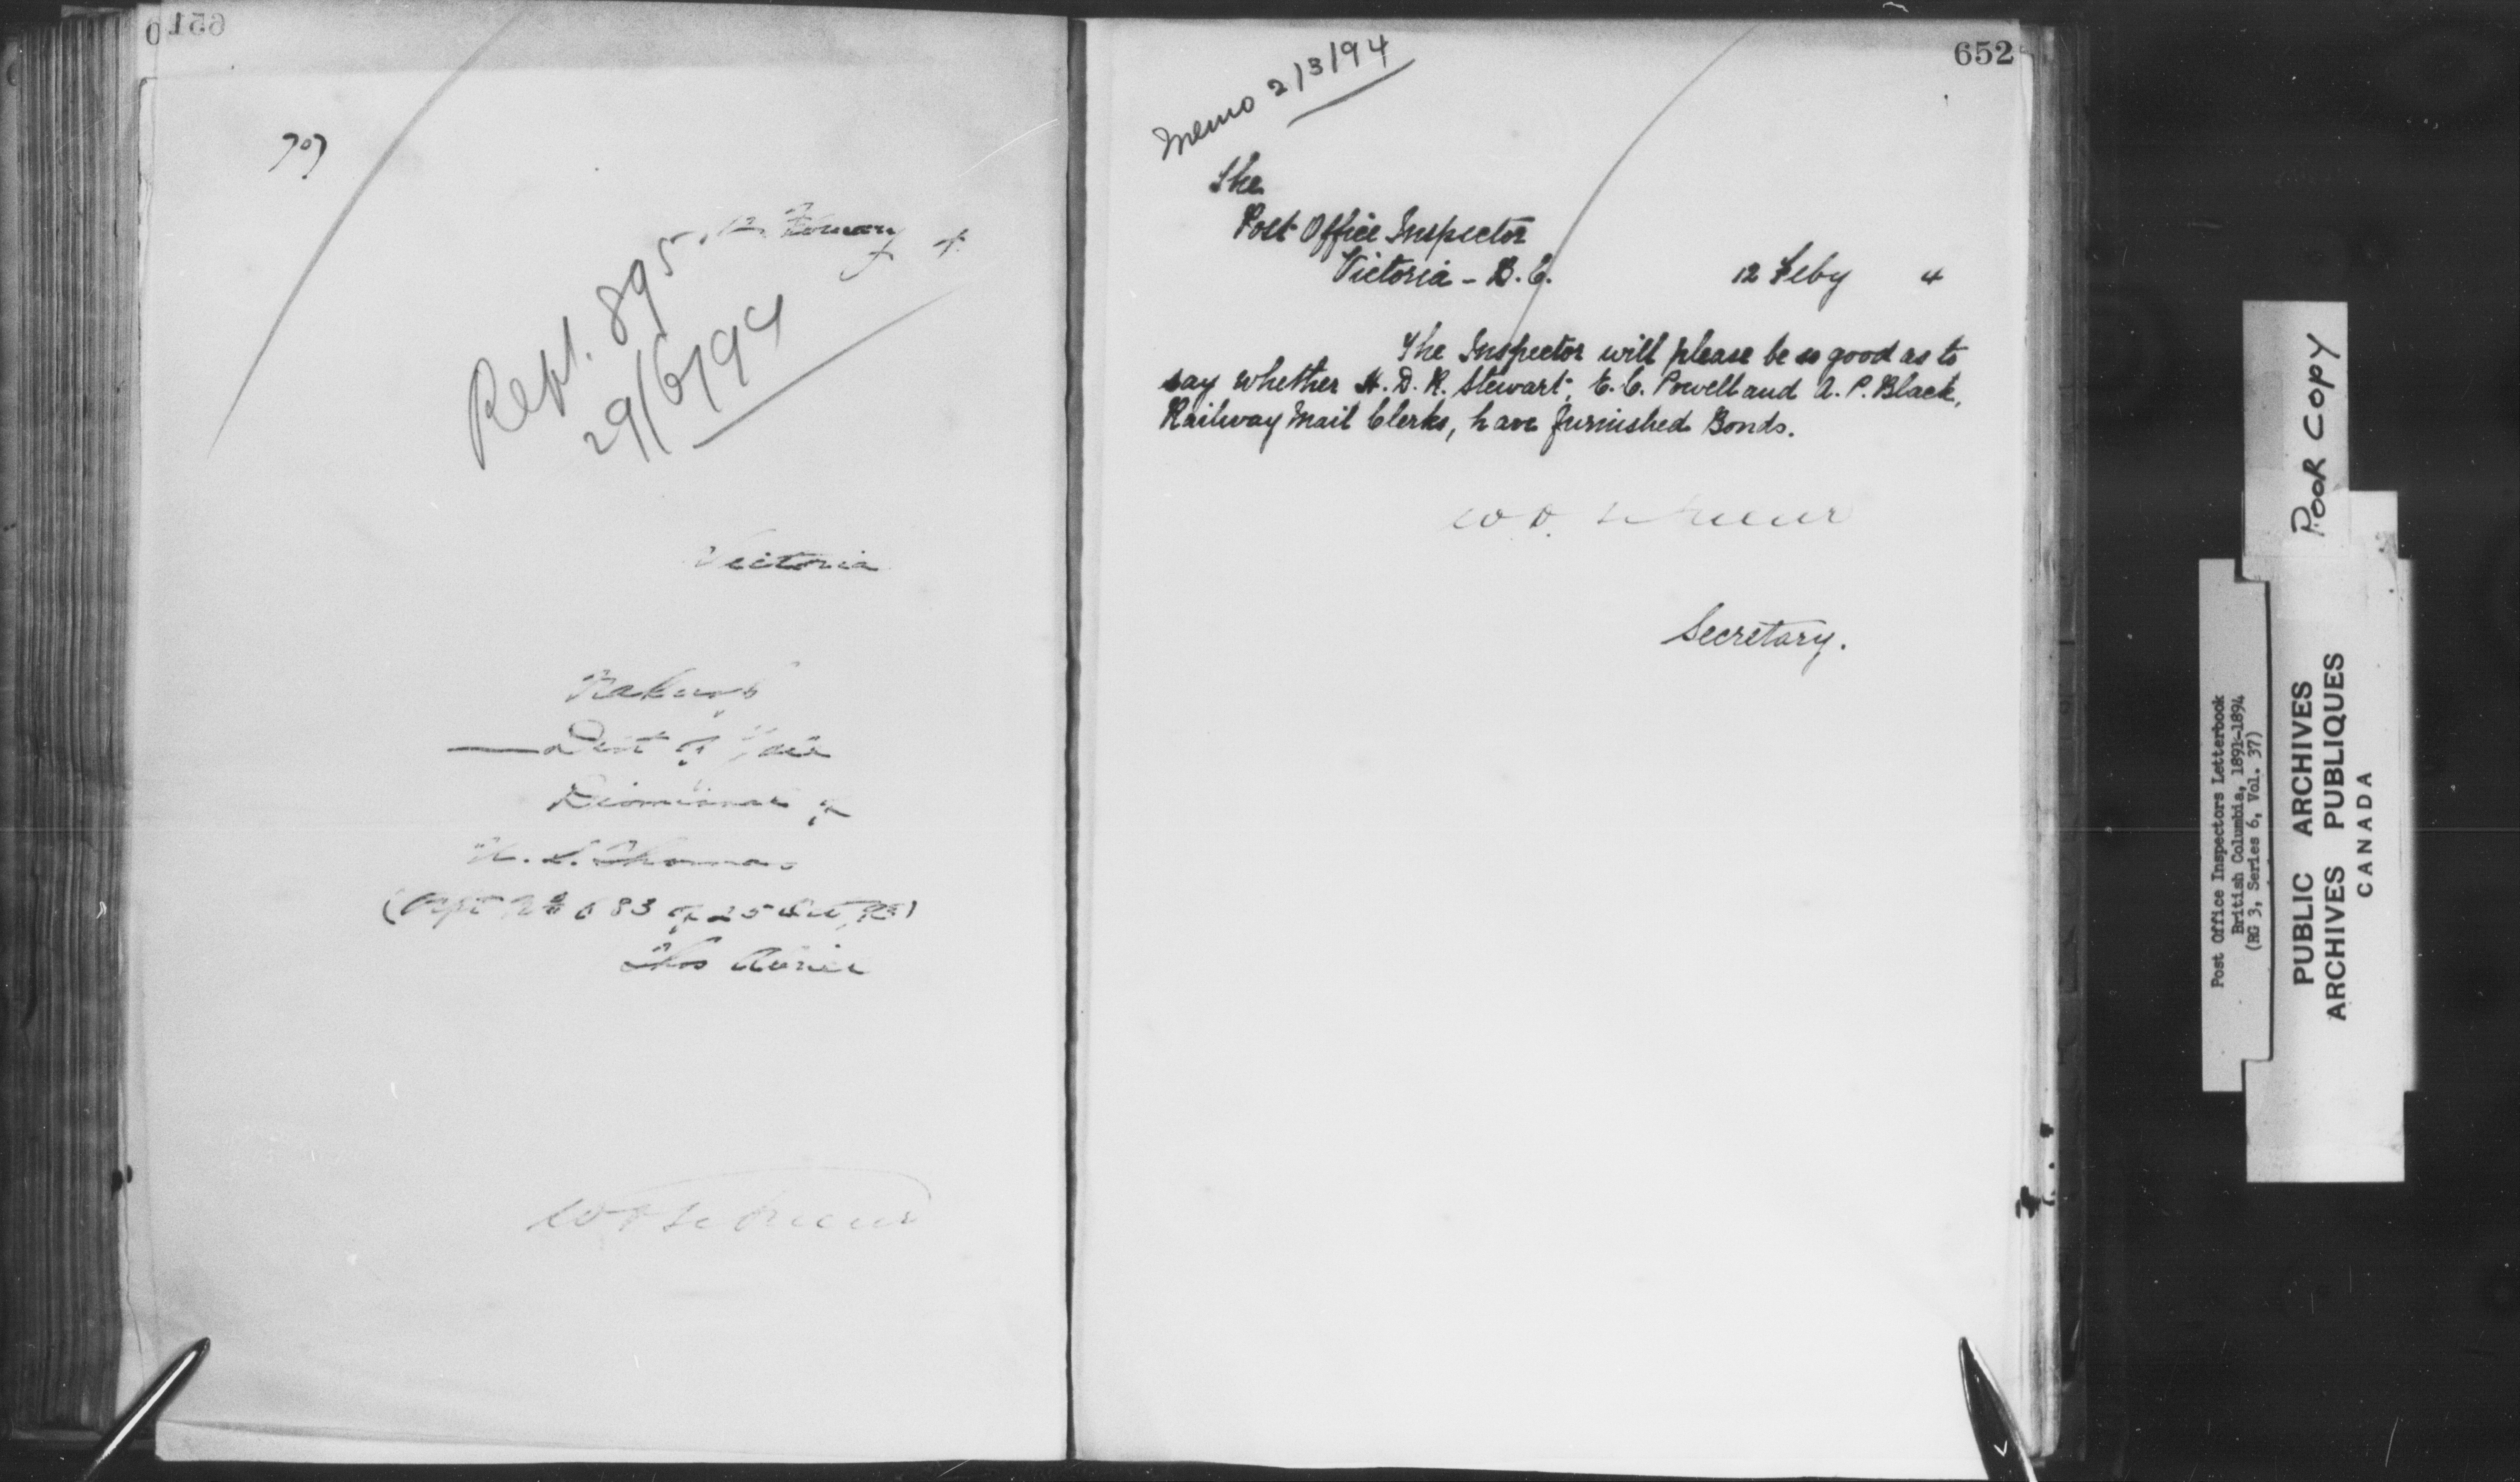 651
707
12 February 4
Rept. 895
29/6/94
Victoria
Nakusp
Dist of Yale
of
Thomas
(Rept No 683 of 25
Thos Abriel
652
Memo 2/3/94
The
Post Office Inspector
Victoria - B.C.
12 Feby 4
The Inspector will please be so good as to
say whether H. D. R. Stewart, E. C. Powell and A. P. Black,
Railway Mail Clerks, have furnished Bonds.
Secretary.
POOR COPY
Post Office Inspectors Letterbook
British Columbia, 1891-1894
(RG 3, Series 6, Vol. 37)
PUBLIC ARCHIVES
ARCHIVES PUBLIQUES
CANADA